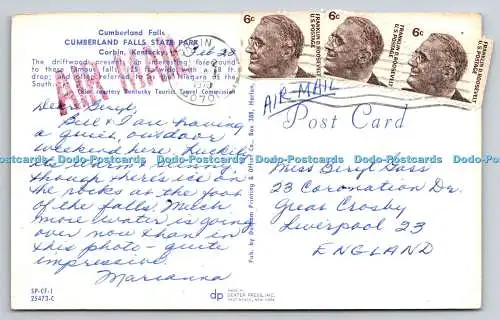 Cumberland Falls
CUMBERLAND FALLS STATE PARK
Corbin, Kentucky
The driftwood presents a menacing foreground to these famous falls, 125 feet wide with a 68 ft.
drop; often referred to as the Niagara of the South.
Color courtesy Kentucky Tourist, Travel Commission
AIR MAIL
Feb 23
Dear Beryl,
Bill & I are having
a quiet, outdoor
weekend here. Luckily
it's
though there's ice on
the rocks at the foot
of the falls! Much
more water is going
over now than in
this photo - quite
impressive.
Marianna
SP-CF-1
25473-C
Pub. by Durham Printing & Office Co., Box 388, Harlan,
dp
MADE BY
DEXTER PRESS, INC.
WEST NYACK, NEW YORK
6c FRANKLIN D. ROOSEVELT U.S. POSTAGE
6c FRANKLIN D. ROOSEVELT U.S. POSTAGE
6c FRANKLIN D. ROOSEVELT U.S. POSTAGE
AIR MAIL
Post Card
Miss Beryl Gass
23 Coronation Dr.
Great Crosby
Liverpool 23
ENGLAND
Dads-Postcards